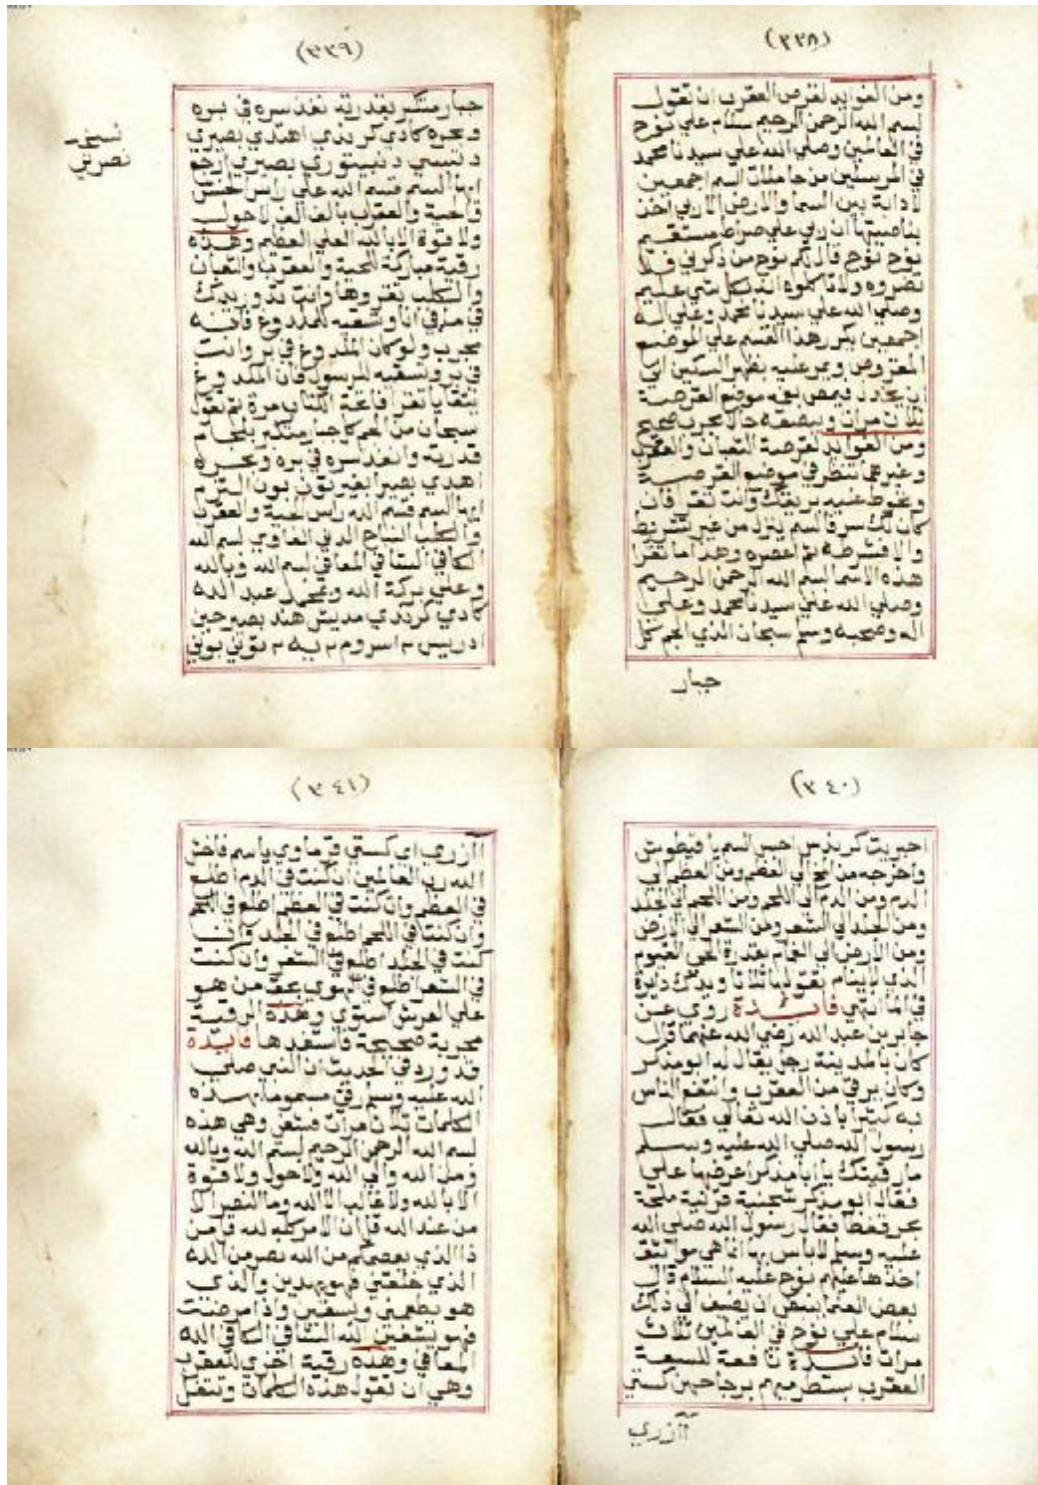 (٣٣٨)
ومن الفوايد لقرص العقرب ان تقول
بسم الله الرحمن الرحيم سلام علي نوح
في العالمين وصلي الله علي سيدنا محمد
في المرسلين من حاملات السم اجمعين
لا دابة بين السما والارض الا ربي آخذ
بناصيتها ان ربي علي صراط مستقيم
نوح نوح قال لكم نوح من ذكرني فلا
تضروه ولا تاكلوه انه بكل شي عليم
وصلي الله علي سيدنا محمد وعلي اله
اجمعين يكرر هذا القسم علي الموضع
المقروص ويمر عليه بظهر السكين الي
ان يخدر فيمص بفمه موضع القرصة
ثلاث مرات ويبصقه حالا مجرب صحيح
ومن الفوايد لقرصة الثعبان والعقرب
وغيرهما تنظر في موضع القرصة
وتحوط عليه بريقك وانت تقرا فان
كان لك سر فالسم ينزل من غير تشريط
والا فشرطه ثم اعصره وهذا ما تقرا
هذه الاسما بسم الله الرحمن الرحيم
وصلي الله علي سيدنا محمد وعلي
اله وصحبه وسلم سبحان الذي الجم كل
جبار
(٣٣٩)
جبار متكبر بقدرته نفذ سره في بره
وبحره كادي كررندي اهندي بصيري
ارجع
ايها السم قسم الله علي راس حنش
والحية والعقرب بالف الف لا حول
ولا قوة الا بالله العلي العظيم وهذه
رقية مباركة للحية والعقرب والثعبان
والكلب يقروها وانت تدور يدك
في ما في انا وتسقيه للملدوغ فانه
مجرب ولو كان الملدوغ في بر وانت
في بر وتسقيه للرسول فان الملدوغ
يتقايا تقرا فاتحة الكتاب مرة ثم تقول
سبحان من الجم كل جبار متكبر بلجام
قدرته وانفذ سره في بره وبحره
اهدي بصيرا بغير نون بون الترم
ايها السم قسم الله راس الحية والعقرب
والكلب النباح الدني الغاوي بسم الله
الكافي الشافي المعافي بسم الله وبالله
وعلي بركة الله وتحمل عبد الله
كادي كرردي مديش هند بصير حين
نسخه
(٣٤٠)
احبس السم يا
واخرجه من المخ الي العظم ومن العظم الي
الدم ومن الدم الي اللحم ومن اللحم الي الجلد
ومن الجلد الي الشعر ومن الشعر الي الارض
ومن الارض الي الغمام بقدرة الحي القيوم
الذي لا ينام يقولها ثلاثا ويدك دايرة
في الما انتهي فائدة روي عن
جابر بن عبد الله رضي الله عنهما قال
كان بالمدينة رجل يقال له ابو مذكر
وكان يرقي من العقرب وانتفع الناس
به كثيرا باذن الله تعالي فقال
رسول الله صلي الله عليه وسلم
ما رقيتك يا ابا مذكر اعرضها علي
فقال ابو مذكر شجنية قرنية ملحة
بحر قفطا فقال رسول الله صلي الله
عليه وسلم لا باس بها انما هي مواثيق
اخذها عليهم نوح عليه السلام قال
بعض العلما ينبغي ان يضيف الي ذلك
سلام علي نوح في العالمين ثلاث
مرات فائدة نافعة للسعة
العقرب
آآزري
(٣٤١)
آآزري
الله رب العالمين ان كنت في الدم اطلع
في العظم وان كنت في العظم اطلع في اللحم
وان كنت في اللحم اطلع في الجلد وان
كنت في الجلد اطلع في الشعر وان كنت
في الشعر اطلع في الهوي بحق من هو
علي العرش استوي وهذه الرقية
مجربة صحيحة فاستفدها فايدة
قد ورد في الحديث ان النبي صلي
الله عليه وسلم رقي مسموما بهذه
الكلمات ثلاث مرات فشفي وهي هذه
بسم الله الرحمن الرحيم بسم الله وبالله
ومن الله والي الله ولا حول ولا قوة
الا بالله ولا غالب الا الله وما النصر الا
من عند الله قل ان الامر كله لله قل من
ذا الذي يعصمكم من الله نصر من الله
الذي خلقني فهو يهدين والذي
هو يطعمني ويسقين واذا مرضت
فهو يشفين لله الشافي الكافي الله
المعافي وهذه رقية اخري للعقرب
وهي ان تقول هذه الكلمات وتتفل